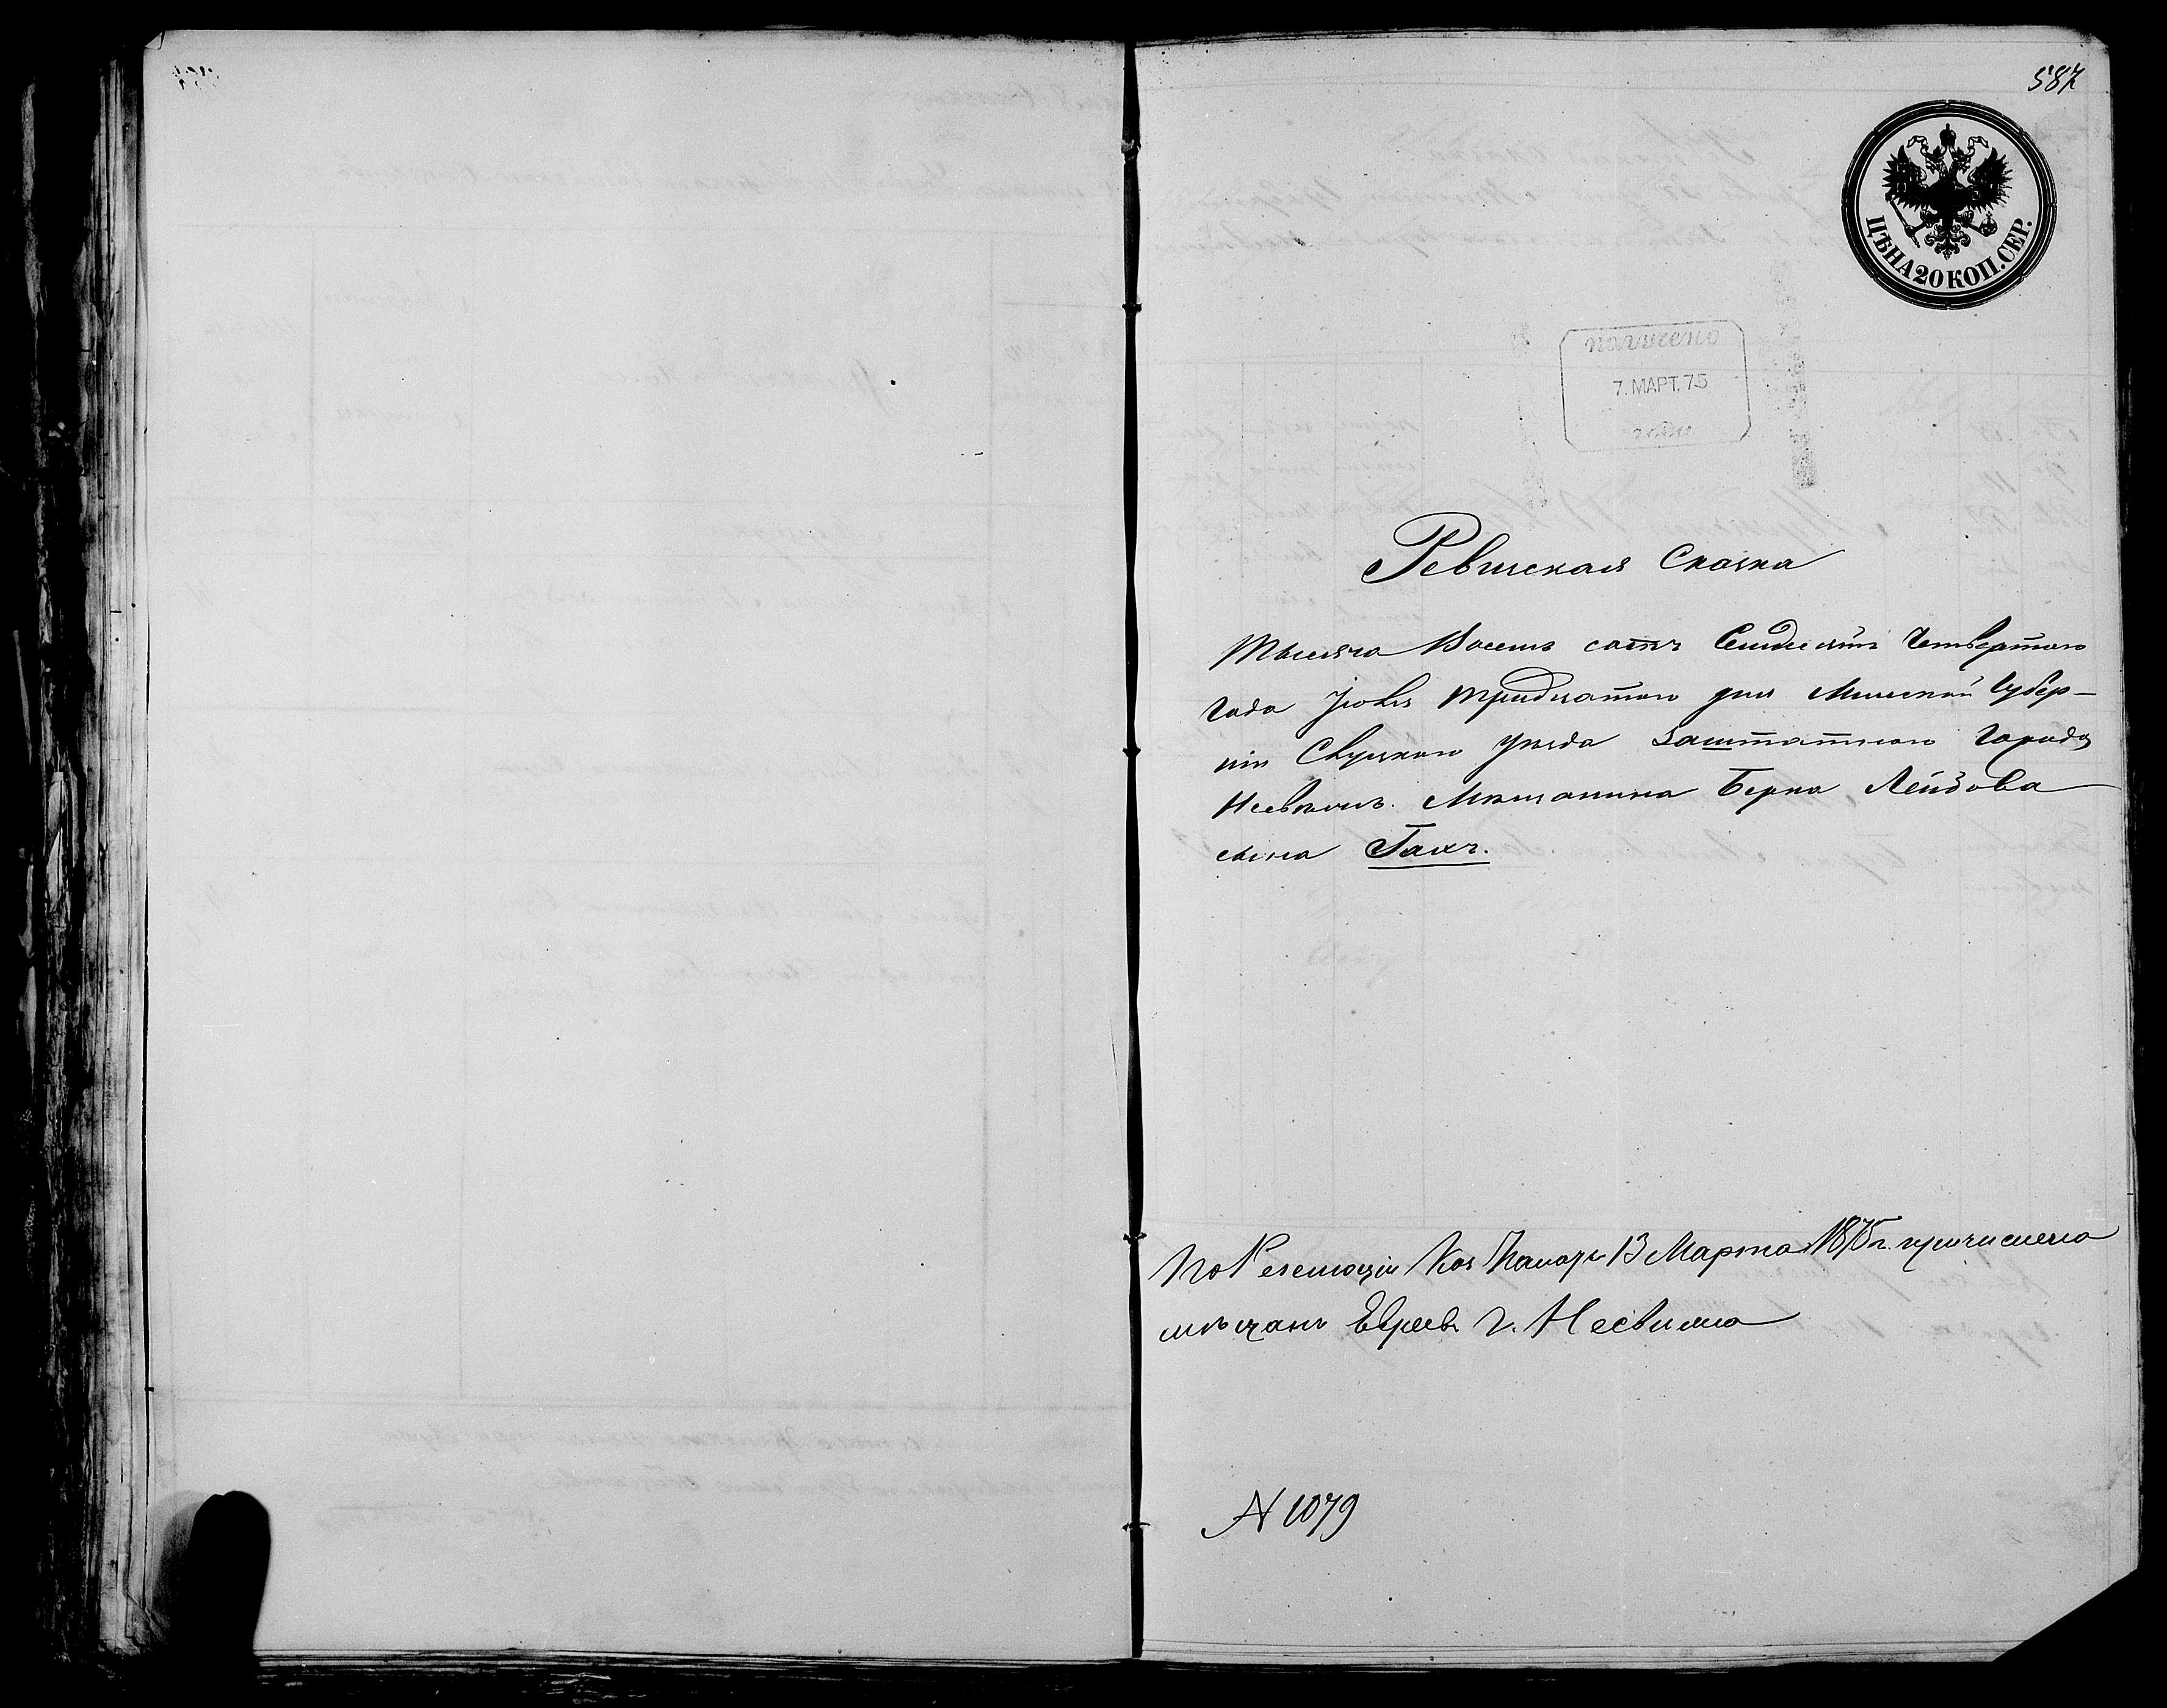 587
ЦѢНА 20 КОП. СЕР.
получено
7. МАРТ. 75
года
Ревизская Сказка
Тысяча Восемь сотъ Семьдесятъ Четвертого
Года Іюня тридцатого дня Минской Губер-
ніи Слуцкого Уѣзда Заштатного Города
Несвижъ. Мѣщанина Берка Лейзова
сына Гахъ.
По Резолюціи Каз Палаты 13 Марта 1875 г. причислена
мѣщанъ Евреевъ г. Несвижа
N 1079